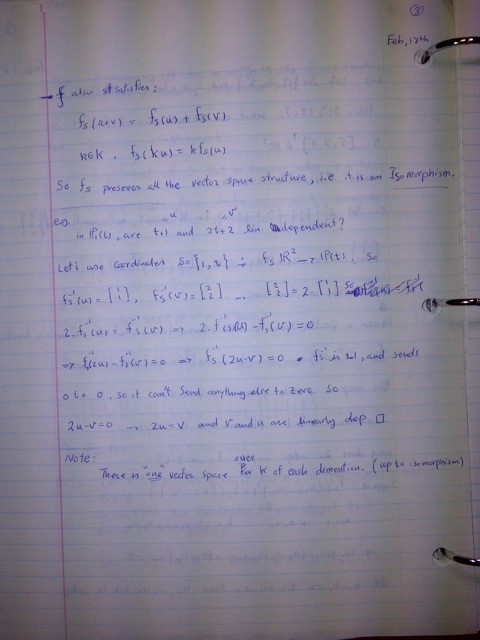 ③
Feb, 18th
f also satisfies:
fs(u+v) = fs(u) + fs(v)
k∈K, fs(ku) = kfs(u)
So fs preserves all the vector space structure, i.e it is an Isomorphism.
eg. u v
in P₁(t), are t+1 and 2t+2 lin. dependent?
Let's use coordinates S={1,t} fs: ℝ² → P(t). So
fs⁻¹(u) = [1 1], fs⁻¹(v) = [2 2] → [2 2] = 2·[1 1] so
2·fs⁻¹(u) = fs⁻¹(v) ⇒ 2·fs⁻¹(u) - fs⁻¹(v) = 0
⇒ fs⁻¹(2u) - fs⁻¹(v) = 0 ⇒ fs⁻¹(2u-v) = 0 • fs⁻¹ is 1:1, and sends
0 to 0, so it can't send anything else to zero. So
2u-v=0 → 2u=v and v and u are linearly dep □
Note:
There is "one" vector space over K of each dimention. (up to isomorphism)